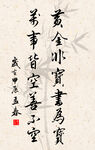 黄金非寶書為寶
萬事皆空善不空
歲在甲辰孟春